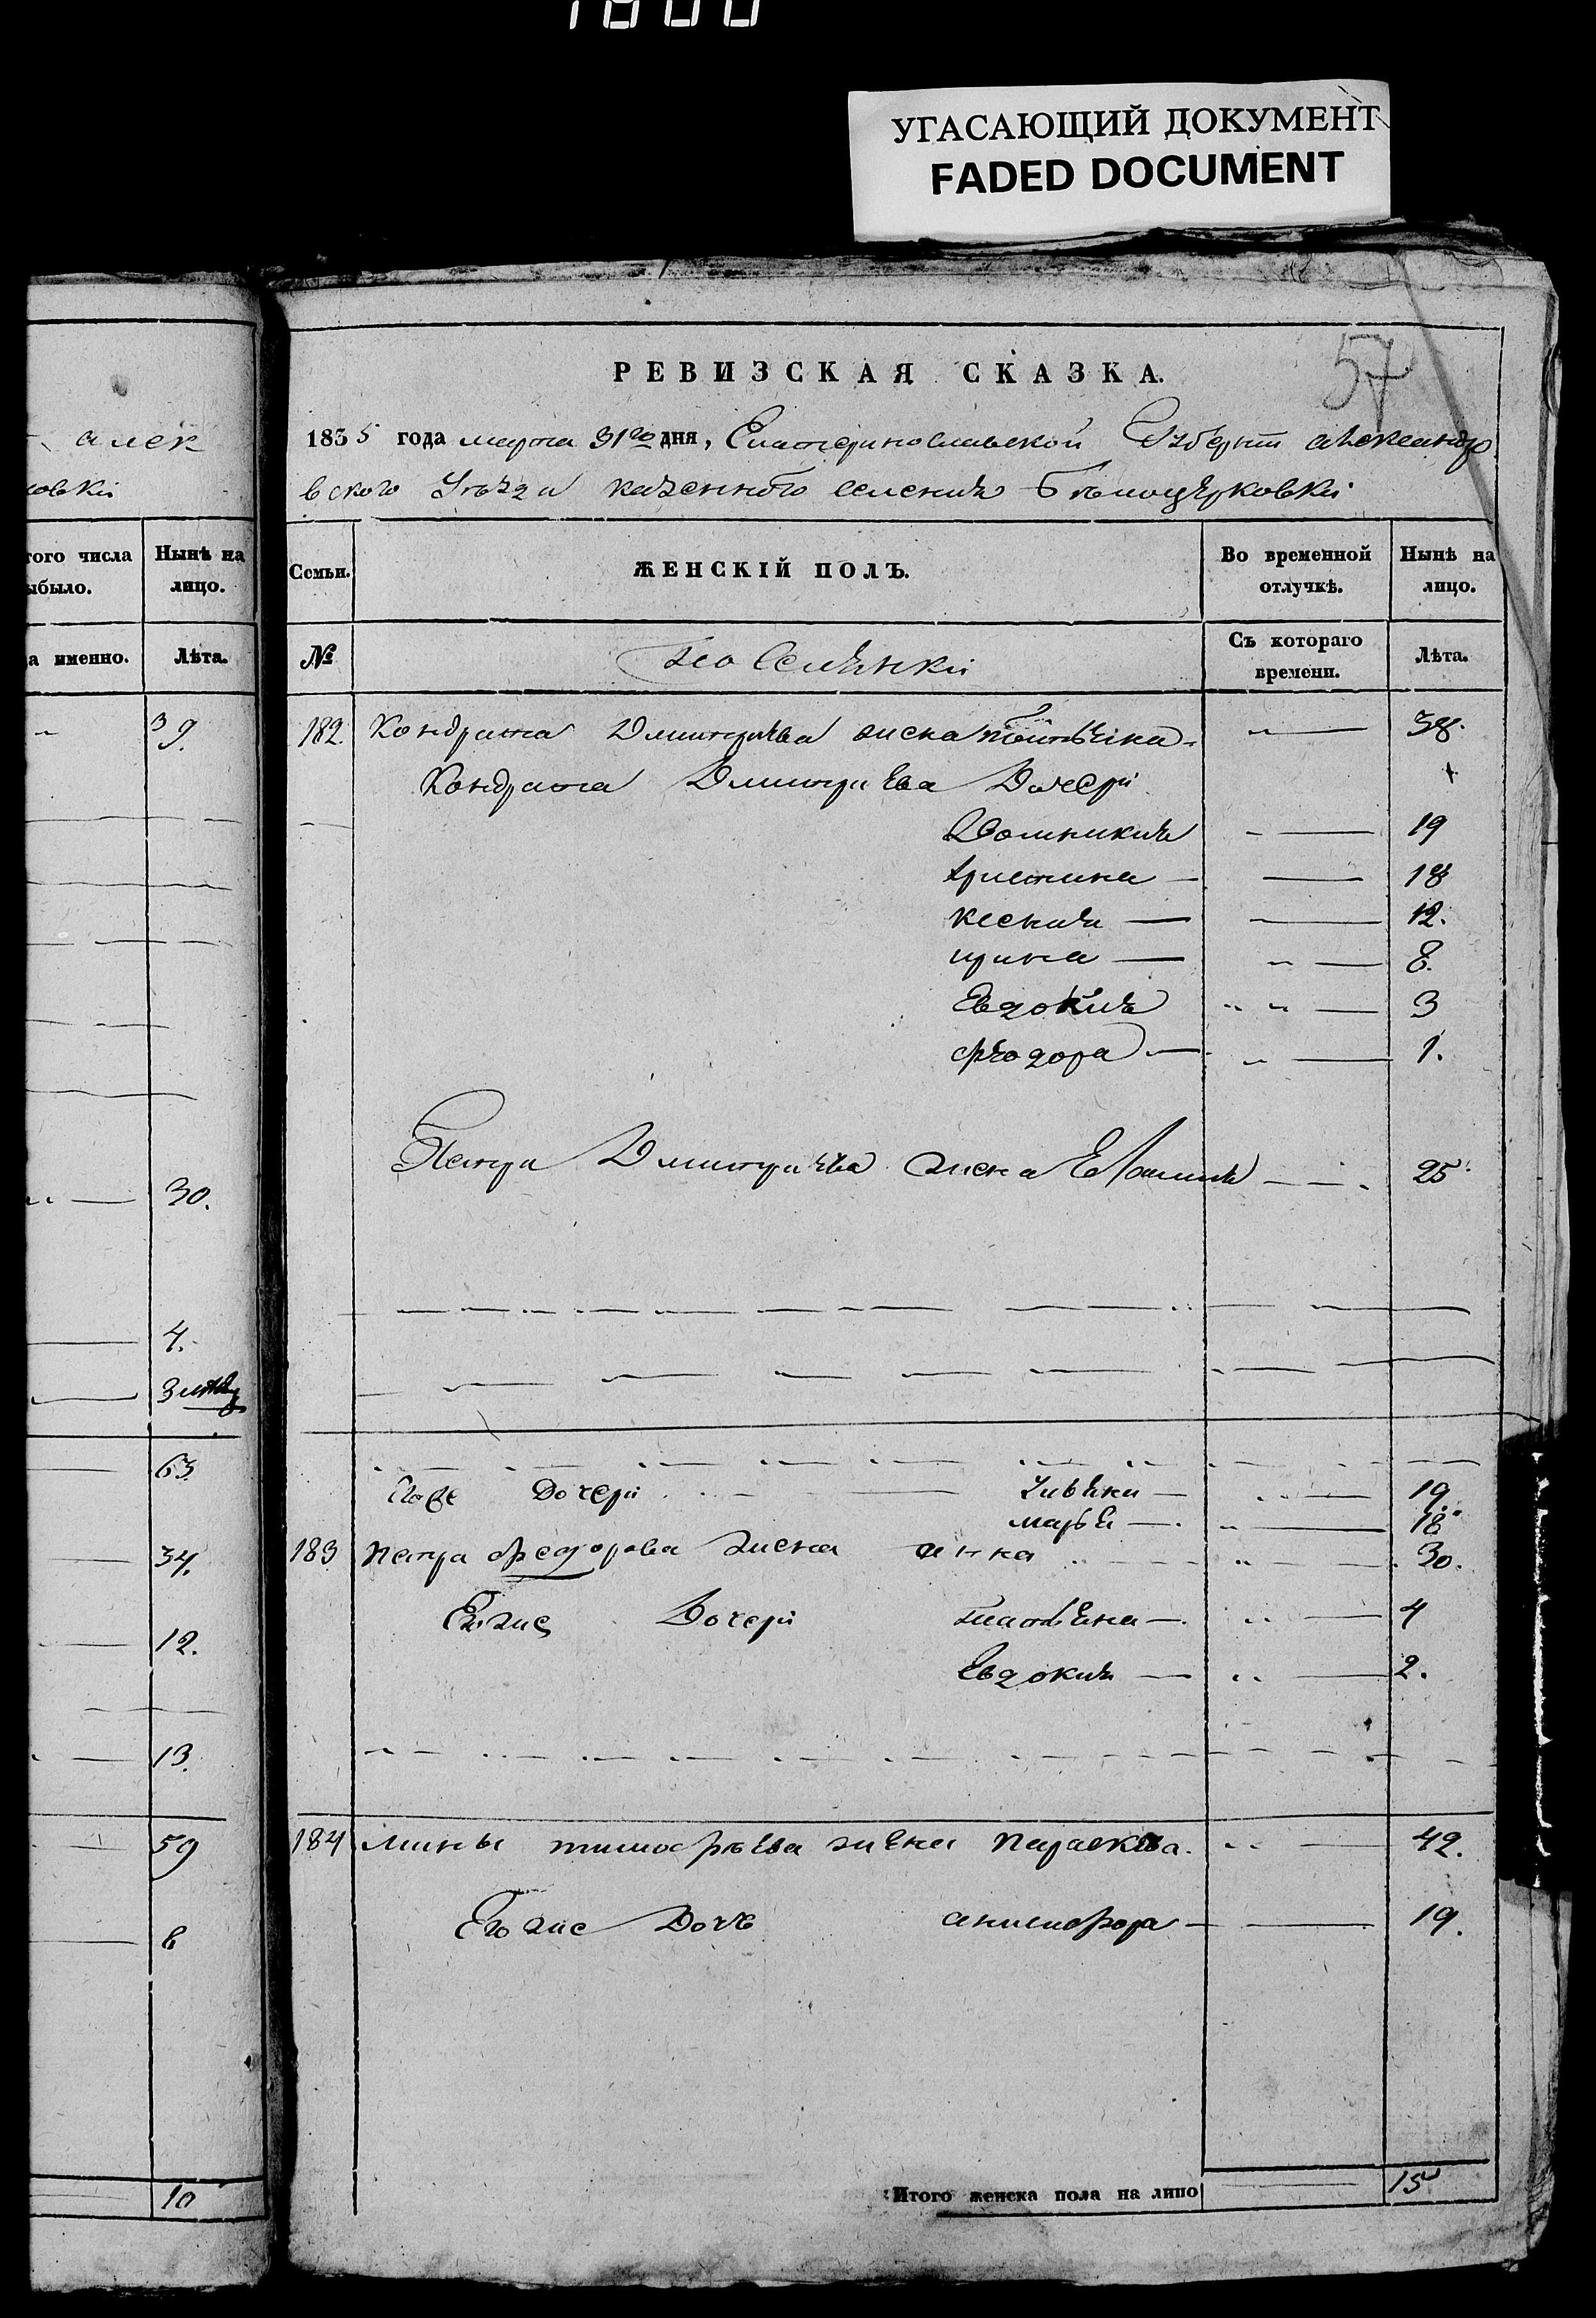 УГАСАЮЩИЙ ДОКУМЕНТ
FADED DOCUMENT
алек
ловки
того числа
ыбыло.
Нынѣ на
лицо.
а именно.
Лѣта.
39.
30.
4.
3
63
34.
12.
13.
59
10
57
РЕВИЗСКАЯ СКАЗКА.
1835 года марта 31го дня, Екатеринославской Губерни александро
вского Уѣзда казенного селения Бѣлоцерковки
Семьи.
ЖЕНСКІЙ ПОЛЪ.
Во временной
отлучкѣ.
Нынѣ на
лицо.
№
Съ котораго
времени.
Лѣта.
182. Кондрата Дмитриева жена 38.
Кондрата Дмитриева Дочери
Домникия 19
христина 18
ксения 12.
ирина 8.
Евдокия 3
феодора 1.
Петра Дмитриева жена 25
Дочери 19.
марья 18
183 петра федорова жена анна 30.
Его же Дочери 4
Евдокия 2.
184 мины тимофѣева жена параскева. 42.
Его же Дочь 19.
Итого женска пола на лицо 15